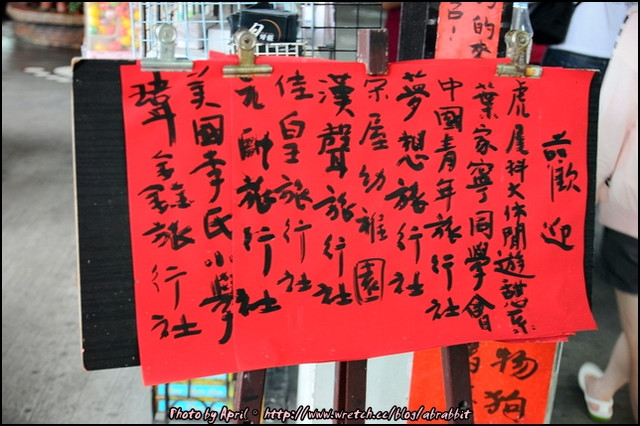 歡迎
虎尾科大休閒遊憩系
葉家寧同學會
中國青年旅行社
夢想旅行社
宋屋幼稚園
漢聲旅行社
佳皇旅行社
元帥旅行社
美國李氏小學
瑋鑫旅行社
的來
物狗
Photo by April。 http://www.wretch.cc/blog/abrabbit